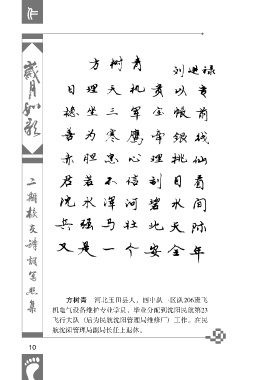 作
岁月如歌
二期校友诗词书画集
方树青 刘进禄
日理天机贡以青
稳坐三军宝帐前
善为寒鹰牵银线
赤胆忠心理
君若不信到目看
浣水浑河碧水间
兵强马壮北天际
又是一个安全年
方树青 河北玉田县人,四中队一区队206班飞
机电气设备维护专业学员,毕业分配到沈阳民航第23
飞行大队(后为民航沈阳管理局维修厂)工作。在民
航沈阳管理局副局长任上退休。
10